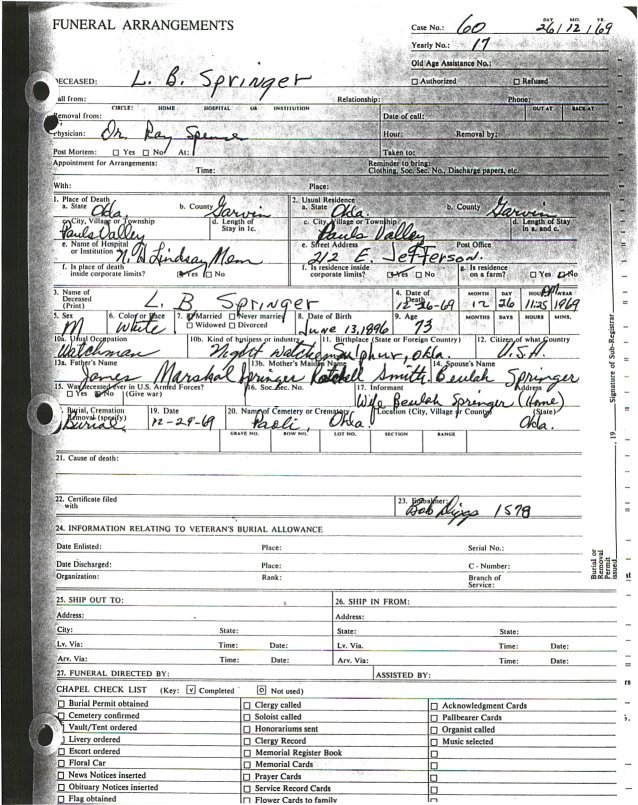 FUNERAL ARRANGEMENTS
Case No.: 60 DAY. MO. YR. 26/12/69
Yearly No.: 17
Old Age Assistance No.:
DECEASED: L. B. Springer ☐ Authorized ☐ Refused
all from: Relationship: Phone:
CIRCLE: HOME HOSPITAL OR INSTITUTION OUT AT BACK AT
Removal from: Date of call:
Physician: Dr. Ray Spense Hour: Removal by:
Post Mortem: ☐ Yes ☐ No At: Taken to:
Appointment for Arrangements: Reminder to bring:
Time: Clothing, Soc. Sec. No., Discharge papers, etc.
With: Place:
1. Place of Death 2. Usual Residence
a. State Okla. b. County Garvin a. State Okla. b. County Garvin
c. City, Village or Township Pauls Valley d. Length of Stay in 1c. c. City, Village or Township Pauls Valley d. Length of Stay in a. and c.
e. Name of Hospital or Institution Lindsay Mem e. Street Address 212 E. Jefferson. Post Office
f. Is place of death inside corporate limits? ☑ Yes ☐ No f. Is residence inside corporate limits? ☑ Yes ☐ No g. Is residence on a farm? ☐ Yes ☑ No
3. Name of Deceased (Print) L. B Springer 4. Date of Death 12-26-69 MONTH 12 DAY 26 HOUR PM 11:25 YEAR 1969
5. Sex M 6. Color or Race White 7. ☑ Married ☐ Never married ☐ Widowed ☐ Divorced 8. Date of Birth June 13, 1896 9. Age 73 MONTHS DAYS HOURS MINS.
10a. Usual Occupation Watchman 10b. Kind of business or industry Night Watchman 11. Birthplace (State or Foreign Country) Sulphur, Okla. 12. Citizen of what Country U.S.A.
13a. Father's Name James Marshal Springer 13b. Mother's Maiden Name Smith 14. Spouse's Name Beulah Springer
15. Was deceased ever in U.S. Armed Forces? ☐ Yes ☑ No (Give war) 16. Soc. Sec. No. 17. Informant Address
Wife Beulah Springer (Home)
18. Burial, Cremation Removal (specify) Burial 19. Date 12-29-69 20. Name of Cemetery or Crematory Paoli, Okla. Location (City, Village or County) (State) Okla.
GRAVE NO. ROW NO. LOT NO. SECTION RANGE
21. Cause of death:
22. Certificate filed with 23. Embalmer: Bob Diggs 1578
24. INFORMATION RELATING TO VETERAN'S BURIAL ALLOWANCE
Date Enlisted: Place: Serial No.:
Date Discharged: Place: C - Number:
Organization: Rank: Branch of Service:
25. SHIP OUT TO: 26. SHIP IN FROM:
Address: Address:
City: State: State: State:
Lv. Via: Time: Date: Lv. Via: Time: Date:
Arv. Via: Time: Date: Arv. Via: Time: Date:
27. FUNERAL DIRECTED BY: ASSISTED BY:
CHAPEL CHECK LIST (Key: ☑ Completed ⊡ Not used)
☐ Burial Permit obtained ☐ Clergy called ☐ Acknowledgment Cards
☐ Cemetery confirmed ☐ Soloist called ☐ Pallbearer Cards
☐ Vault/Tent ordered ☐ Honorariums sent ☐ Organist called
☐ Livery ordered ☐ Clergy Record ☐ Music selected
☐ Escort ordered ☐ Memorial Register Book ☐
☐ Floral Car ☐ Memorial Cards ☐
☐ News Notices inserted ☐ Prayer Cards ☐
☐ Obituary Notices inserted ☐ Service Record Cards ☐
☐ Flag obtained ☐ Flower Cards to family ☐
Signature of Sub-Registrar
19
Burial or Removal Permit issued